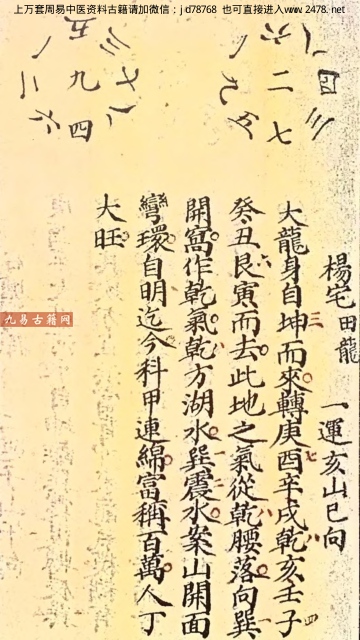 上万套周易中医资料古籍请加微信：jd78768 也可直接进入www.2478.net
楊宅田龍 一運亥山巳向
大龍身自坤而來轉庚酉辛戌乾亥壬子
癸丑艮寅而去此地之氣從乾腰落向巽
開窩作乾氣乾方湖水巽震水案山開面
彎環自明迄今科甲連綿富稱百萬人丁
大旺
九易古籍网